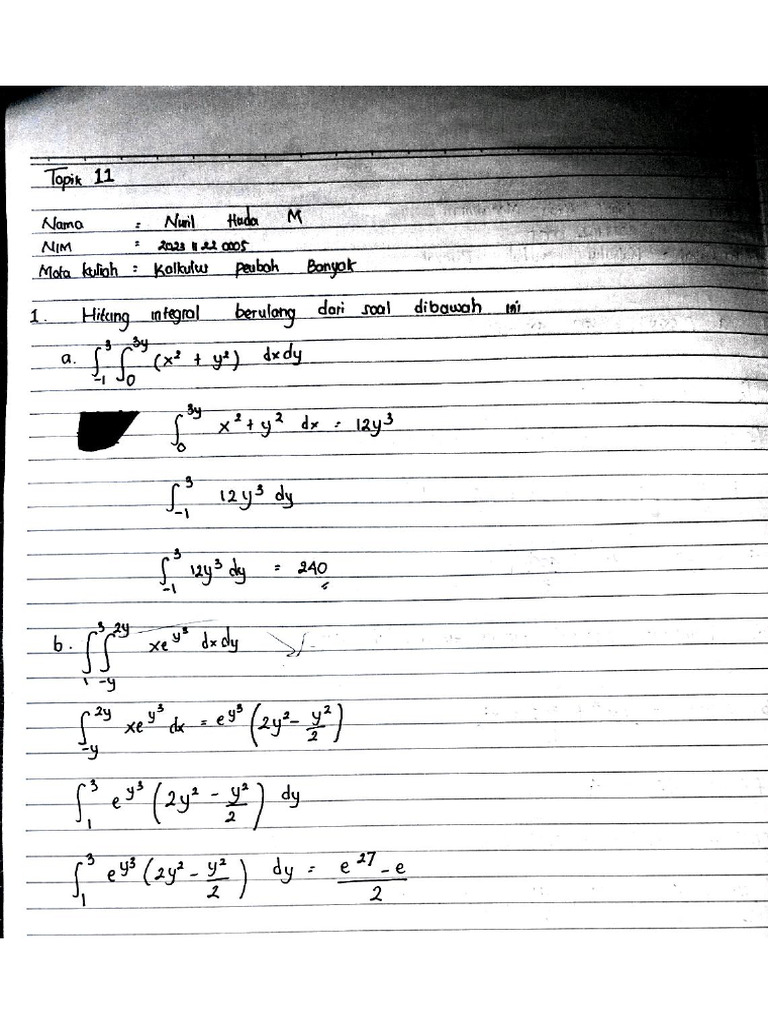 Topik 11
Nama : Nuril Huda M
NIM : 2023 11 22 0005
Mata kuliah : Kalkulus peubah Banyak
1. Hitung integral berulang dari soal dibawah ini
a. ∫₋₁³ ∫₀³ʸ (x² + y²) dx dy
∫₀³ʸ x² + y² dx = 12y³
∫₋₁³ 12y³ dy
∫₋₁³ 12y³ dy = 240
b. ∫₁³ ∫₋ᵧ²ʸ xe^{y³} dx dy
∫₋ᵧ²ʸ xe^{y³} dx = e^{y³} (2y² - y²/2)
∫₁³ e^{y³} (2y² - y²/2) dy
∫₁³ e^{y³} (2y² - y²/2) dy = (e²⁷ - e)/2